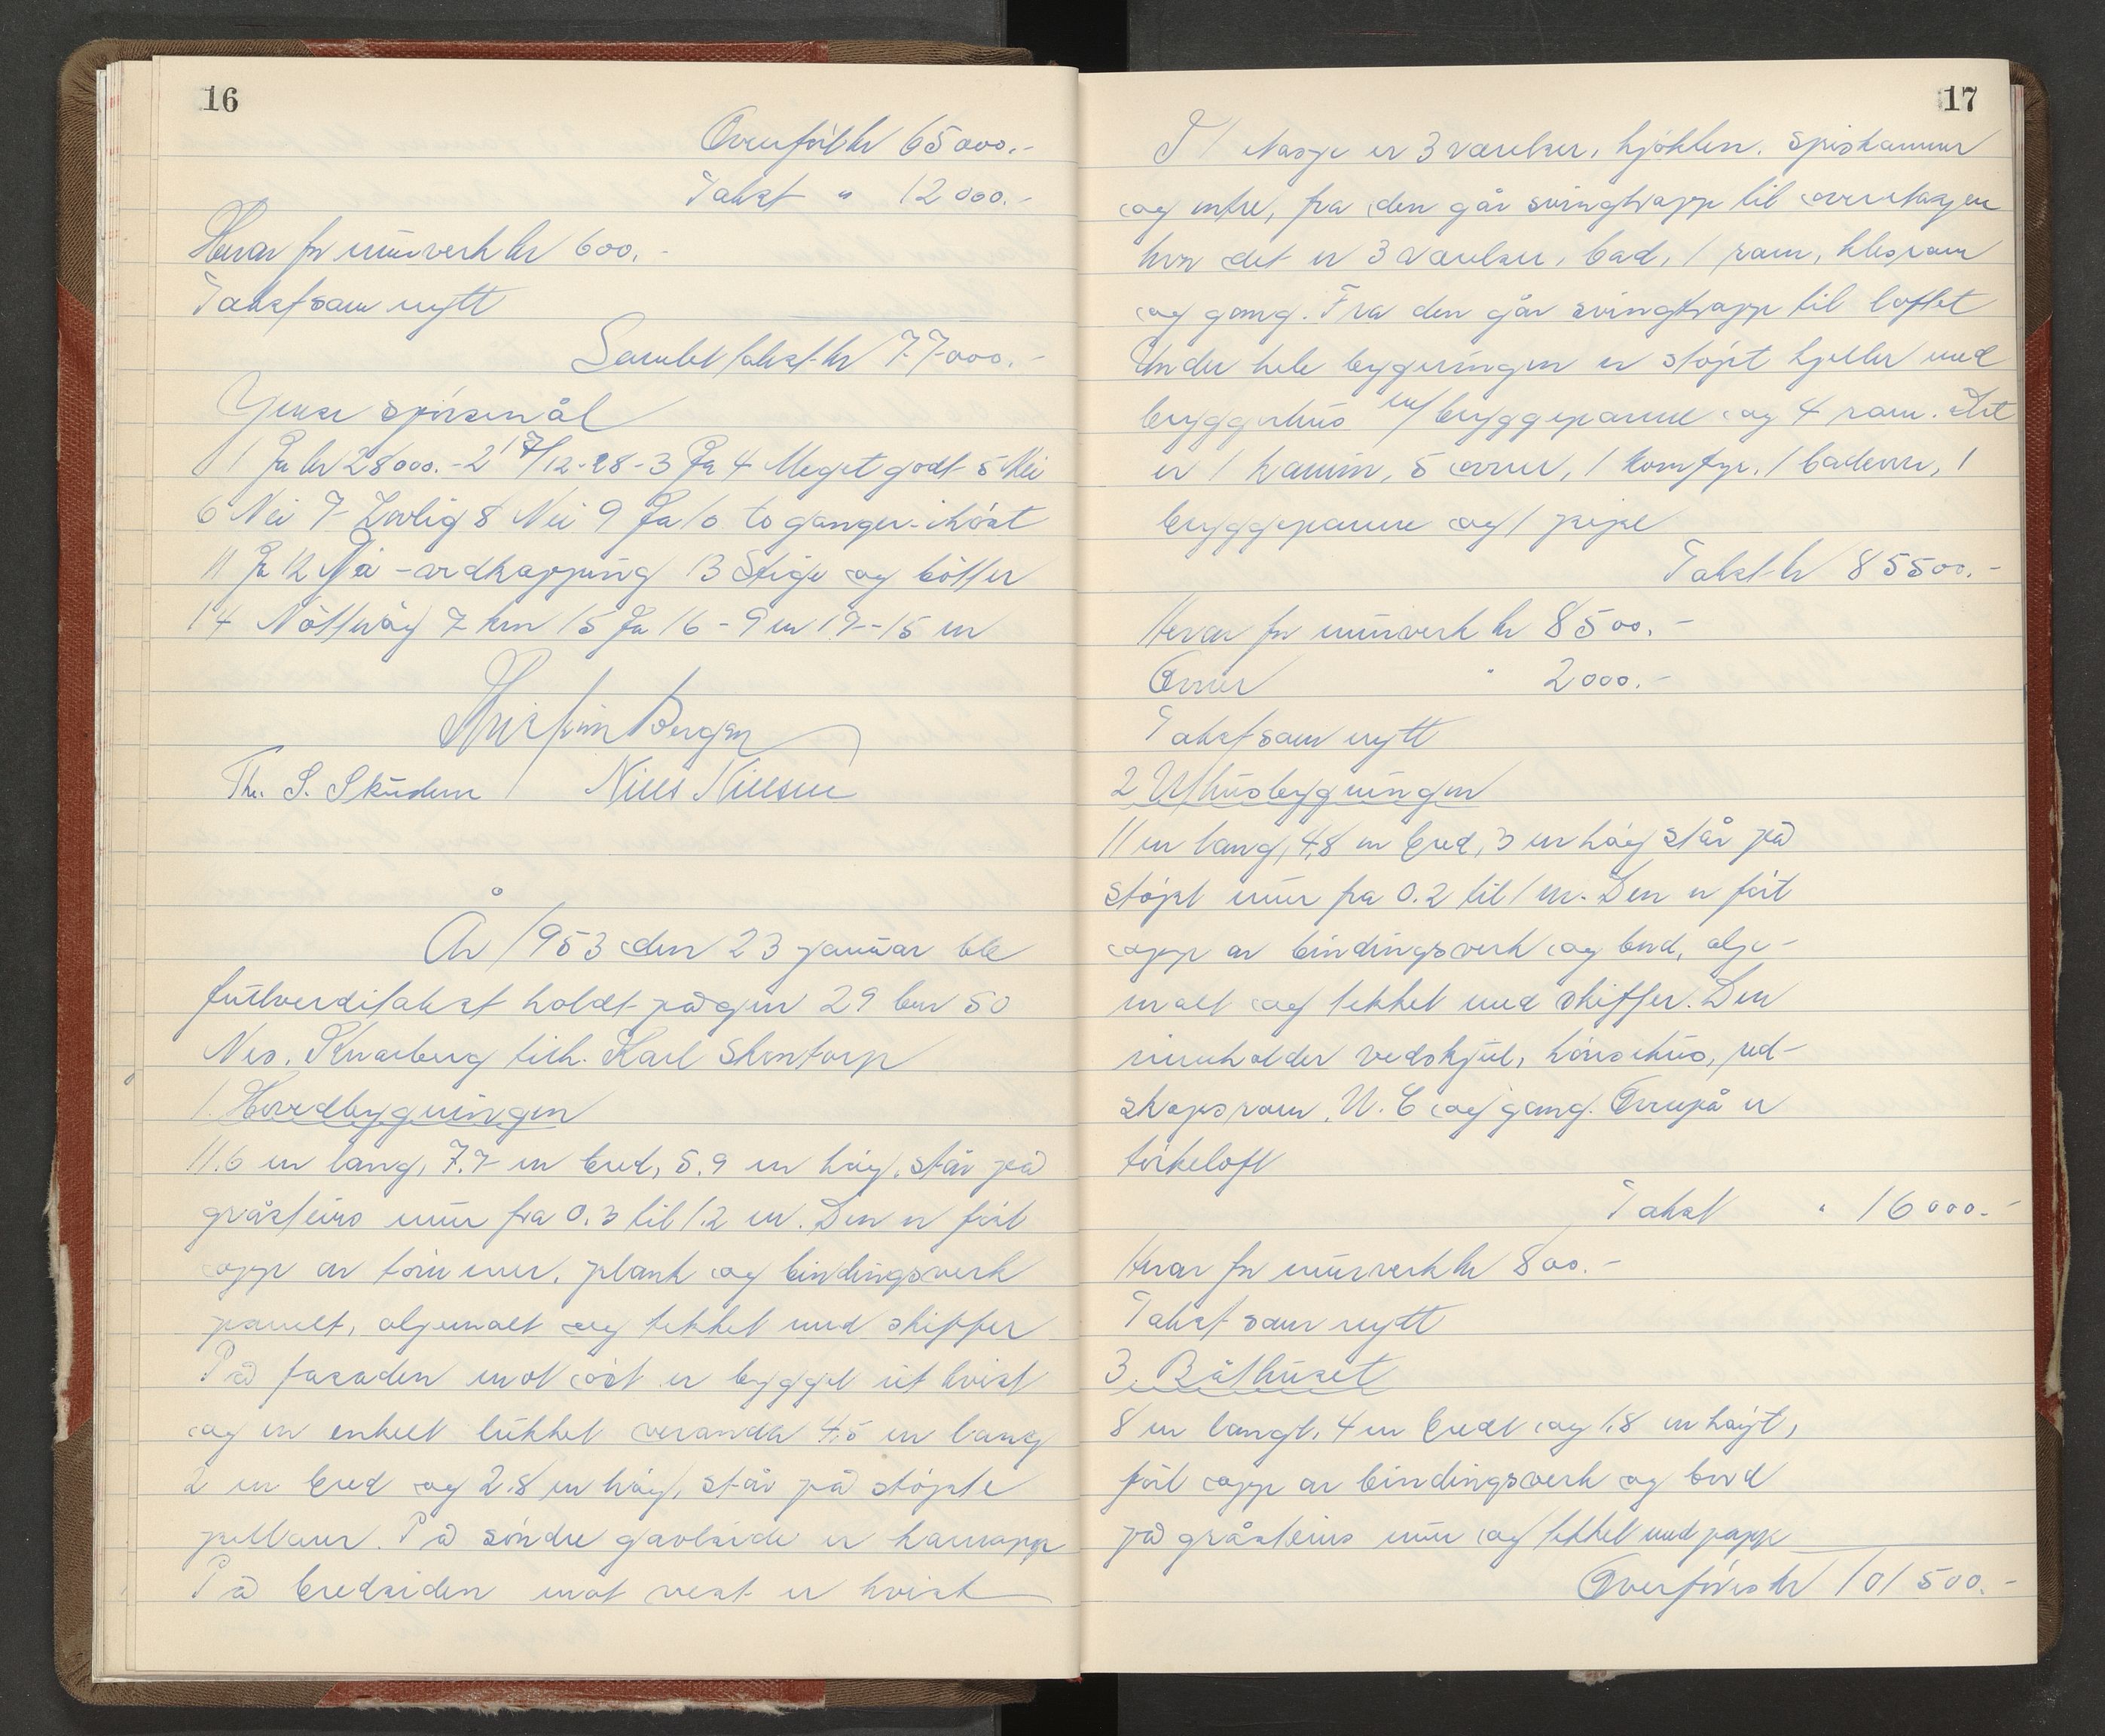 16
Overført kr 65000.-
Takst " 12000.-
Herav for murverk kr 600.-
Takst som nytt
Samlet takst kr 77000.-
Ymse spörsmål
1 Ja kr 28000.- 2 17/12-28 - 3 Ja 4 Meget godt 5 Nei
6 Nei 7 Lovlig 8 Nei 9 Ja 10 to ganger - i höst
11 Ja 12 Nei - ordkapping 13 Stige og bötter
14 Nötteröy 7 km 15 Ja 16 - 9 m 17 - 15 m
Kristian Bergan
Th. S. Skudem Nils Nielsen
År 1953 den 23 januar ble
fullverditakst holdt på gnr 29 bnr 50
Nes. Knarberg tilh. Karl Skontorp
1. Hovedbygningen
11.6 m lang, 7.7 m bred, 5.9 m høy, står på
gråsteins mur fra 0.3 til 1.2 m. Den er fört
opp av tömmer, plank og bindingsverk
panelt, oljemalt og tekket med skiffer
På fasaden mot öst er bygget ut kvist
og en enkelt lukket veranda 4,5 m lang
2 m bred og 2.8 m høy, står på støpte
pillarer. På söndre gavlside er karnapp
På bredsiden mot vest er kvist
17
I 1 etasje er 3 værelser, kjøkken, spiskammer
og entre, fra den går svingtrapp til overetagen
hvor det er 3 værelser, bad, 1 rom, klesrom
og gang. Fra den går svingtrapp til loftet
Under hele bygningen er støpt kjeller med
bryggerhus m/ bryggepanne og 4 rom. Det
er 1 kamin, 5 ovner, 1 komfyr, 1 badeovn, 1
bryggepanne og 1 pipe
Takst kr 85500.-
Herav for murverk kr 8500.-
Ovner " 2000.-
Takst som nytt
2 Uthusbygningen
11 m lang, 4,8 m bred, 3 m høy står på
støpt mur fra 0.2 til 1 m. Den er fört
opp av bindingsverk og bord, olje-
malt og tekket med skiffer. Den
inneholder vedskjul, hönsehus, red-
skapsrom, W.C og gang. Ovenpå er
törkeloft
Takst " 16000.-
Herav for murverk kr 800.-
Takst som nytt
3. Båthuset
8 m langt, 4 m bredt og 1,8 m høyt,
fört opp av bindingsverk og bord
på gråsteins mur og tekket med papp
Overföres kr 101500.-